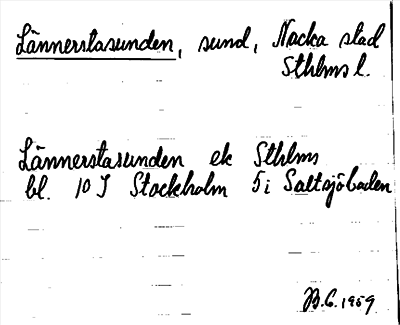 Lännerstasunden, sund, Nacka stad
Sthlms l.
Lännerstasunden ek Sthlms
bl. 10 J Stockholm 5 i Saltsjöbaden
B.G. 1959